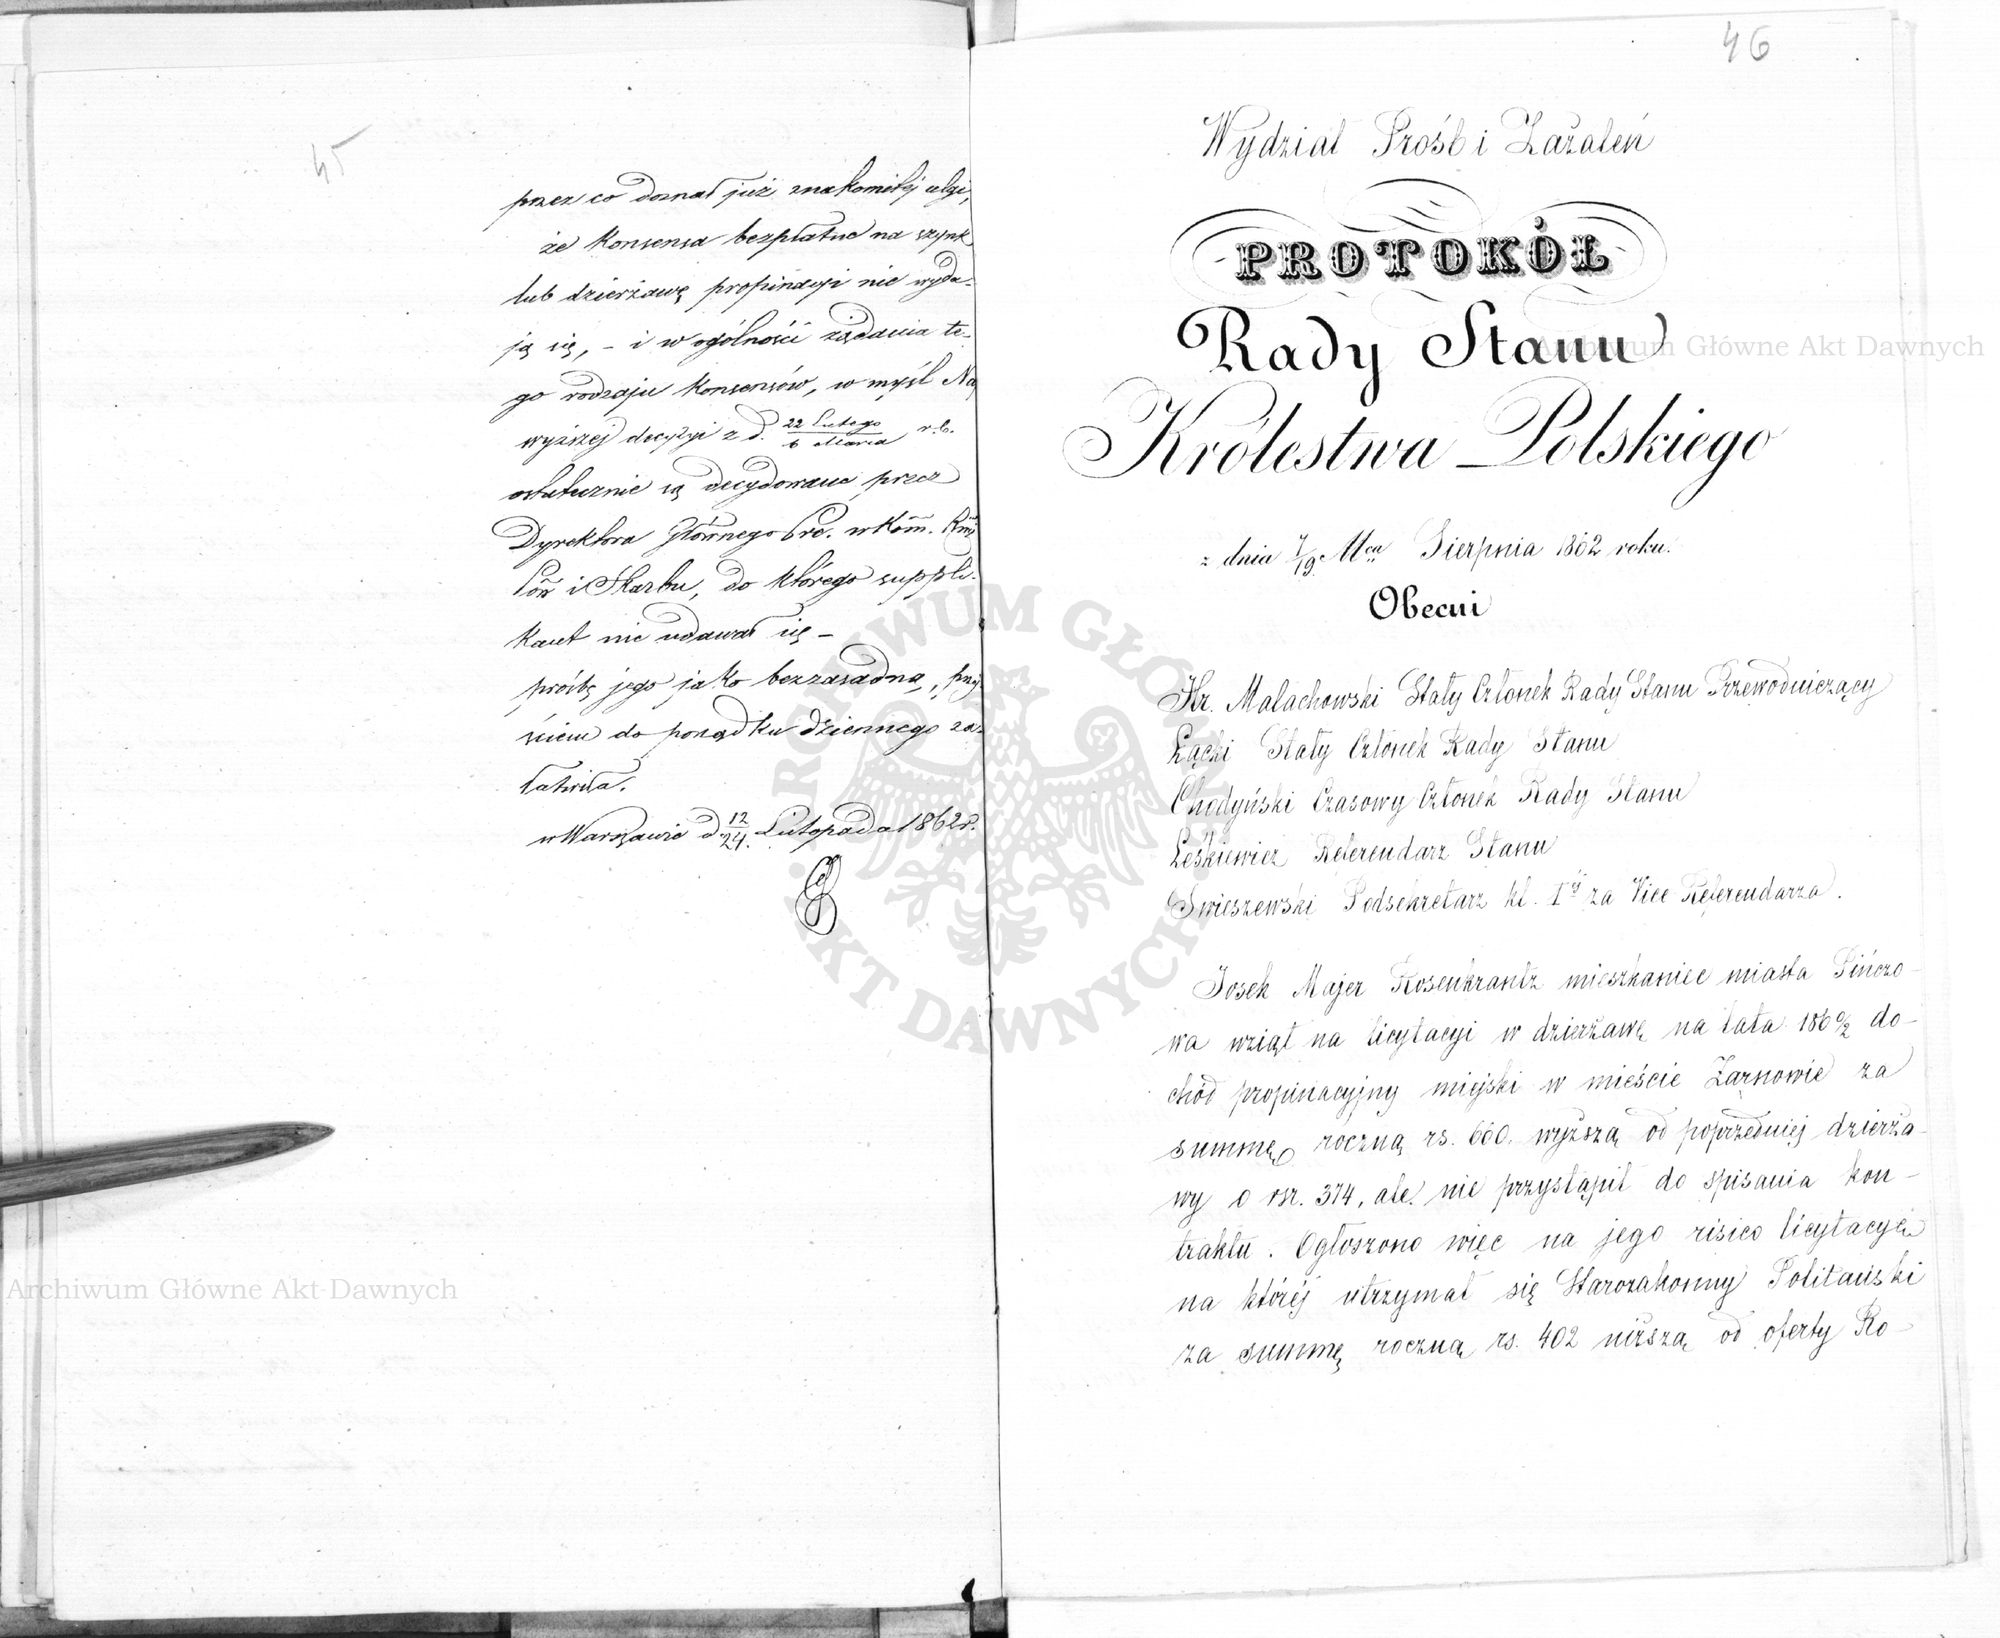 45
przez co doznał już znakomitéj ulgi,
że konsensa bezpłatne na szynk
lub dzierżawę propinacyi nie wyda-
ją się, – i w ogólności żądania te-
go rodzaju konsensów, w myśl Naj
wyższéj decyzyi z d. 22 Lutego / 6 Marca r.b.
ostatecznie są decydowane przez
Dyrektora Głównego Prez. w Kom.
i Skarbu, do którego suppli-
kant nie udawał się –
prośbę jego jako bezzasadną, przej
ściem do porządku dziennego za-
łatwiła.
w Warszawie d. 12/24. Listopada 1862 r.
46
Wydział Próśb i Zażaleń
PROTOKÓŁ
Rady Stanu
Królestwa Polskiego
z dnia 7/19. Mca Sierpnia 1862 roku.
Obecni
Hr. Małachowski Stały Członek Rady Stanu Przewodniczący
Łącki Stały Członek Rady Stanu
Chodyński Czasowy Członek Rady Stanu
Leśkiewicz Referendarz Stanu
Swieszewski Podsekretarz kl. Iéj za Vice Referendarza.
Josek Majer Rosenkrantz mieszkaniec miasta Pińczo-
wa wziął na licytacyi w dzierżawę na lata 1860/2 do-
chód propinacyjny miejski w mieście Żarnowie za
summę roczną rs. 660. wyższą od poprzedniéj dzierża-
wy o rsr. 374, ale nie przystąpił do spisania kon-
traktu. Ogłoszono więc na jego risico licytacyę
na któréj utrzymał się Starozakonny Politański
za summę roczną rs. 402 niższą od oferty Ro-
Archiwum Główne Akt Dawnych
Archiwum Główne Akt Dawnych
ARCHIWUM GŁÓWNE AKT DAWNYCH